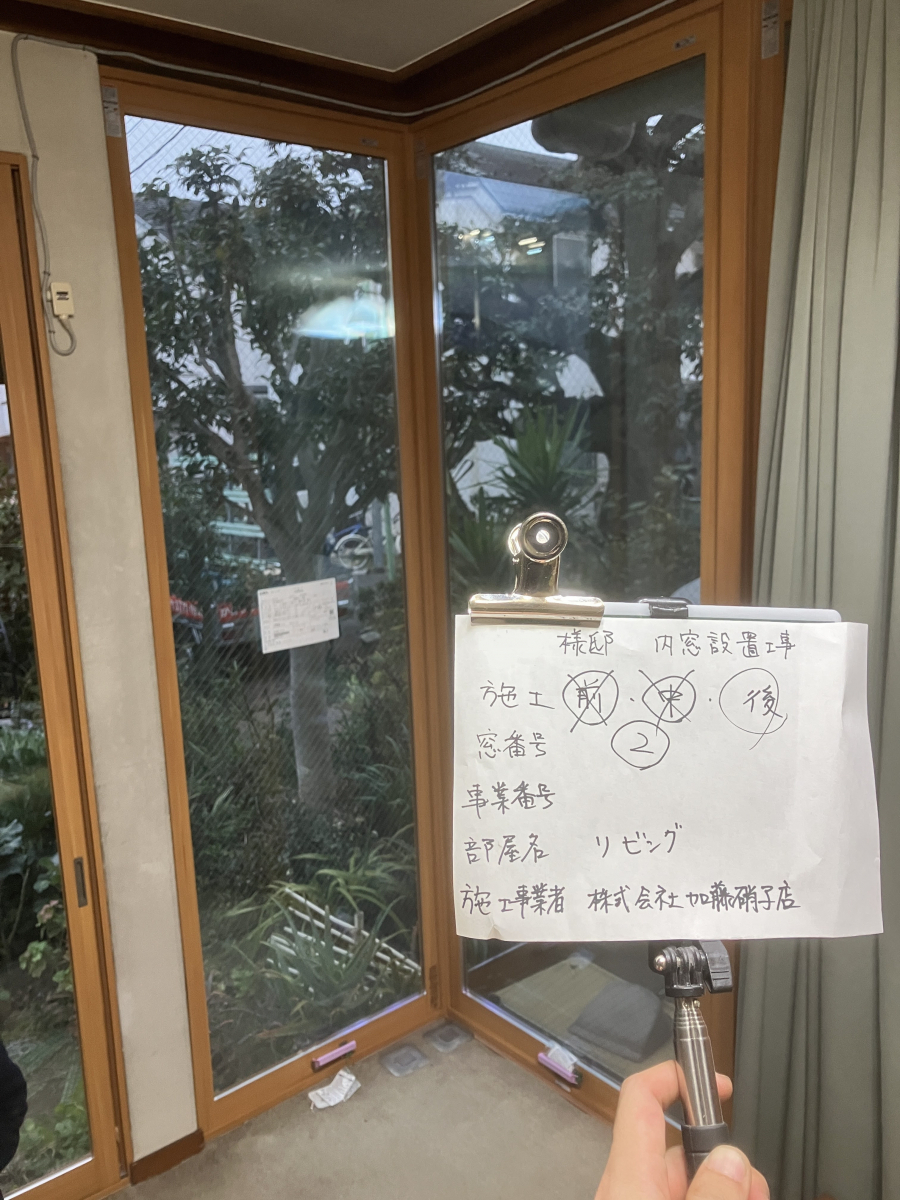 様邸 内窓設置工事
施工 前・中・後
窓番号 2
事業番号
部屋名 リビング
施工事業者 株式会社加藤硝子店